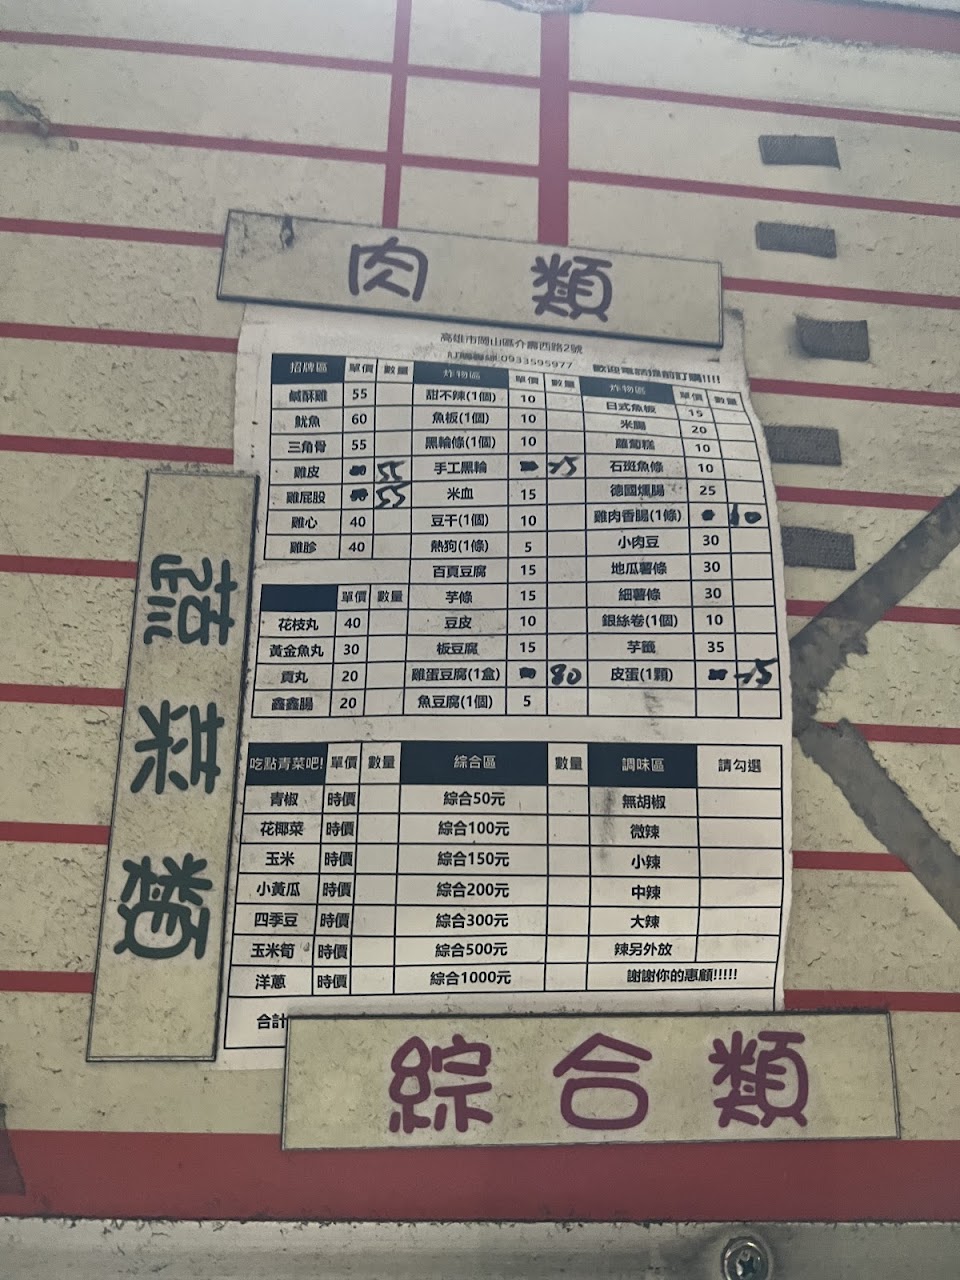 肉 類
高雄市岡山區介壽西路2號
訂購專線:0933595977 歡迎電話提前訂購!!!!
招牌區 單價 數量 炸物區 單價 數量 炸物區 單價 數量
鹹酥雞 55 甜不辣(1個) 10 日式魚板 15
魷魚 60 魚板(1個) 10 米腸 20
三角骨 55 黑輪條(1個) 10 蘿蔔糕 10
雞皮 55 手工黑輪 15 石斑魚條 10
雞屁股 55 米血 15 德國燻腸 25
雞心 40 豆干(1個) 10 雞肉香腸(1條) 10
雞胗 40 熱狗(1條) 5 小肉豆 30
百頁豆腐 15 地瓜薯條 30
單價 數量 芋條 15 細薯條 30
花枝丸 40 豆皮 10 銀絲卷(1個) 10
黃金魚丸 30 板豆腐 15 芋籤 35
貢丸 20 雞蛋豆腐(1盒) 80 皮蛋(1顆) 15
鑫鑫腸 20 魚豆腐(1個) 5
吃點青菜吧! 單價 數量 綜合區 數量 調味區 請勾選
青椒 時價 綜合50元 無胡椒
花椰菜 時價 綜合100元 微辣
玉米 時價 綜合150元 小辣
小黃瓜 時價 綜合200元 中辣
四季豆 時價 綜合300元 大辣
玉米筍 時價 綜合500元 辣另外放
洋蔥 時價 綜合1000元 謝謝你的惠顧!!!!!
合計
蔬菜類
綜合類